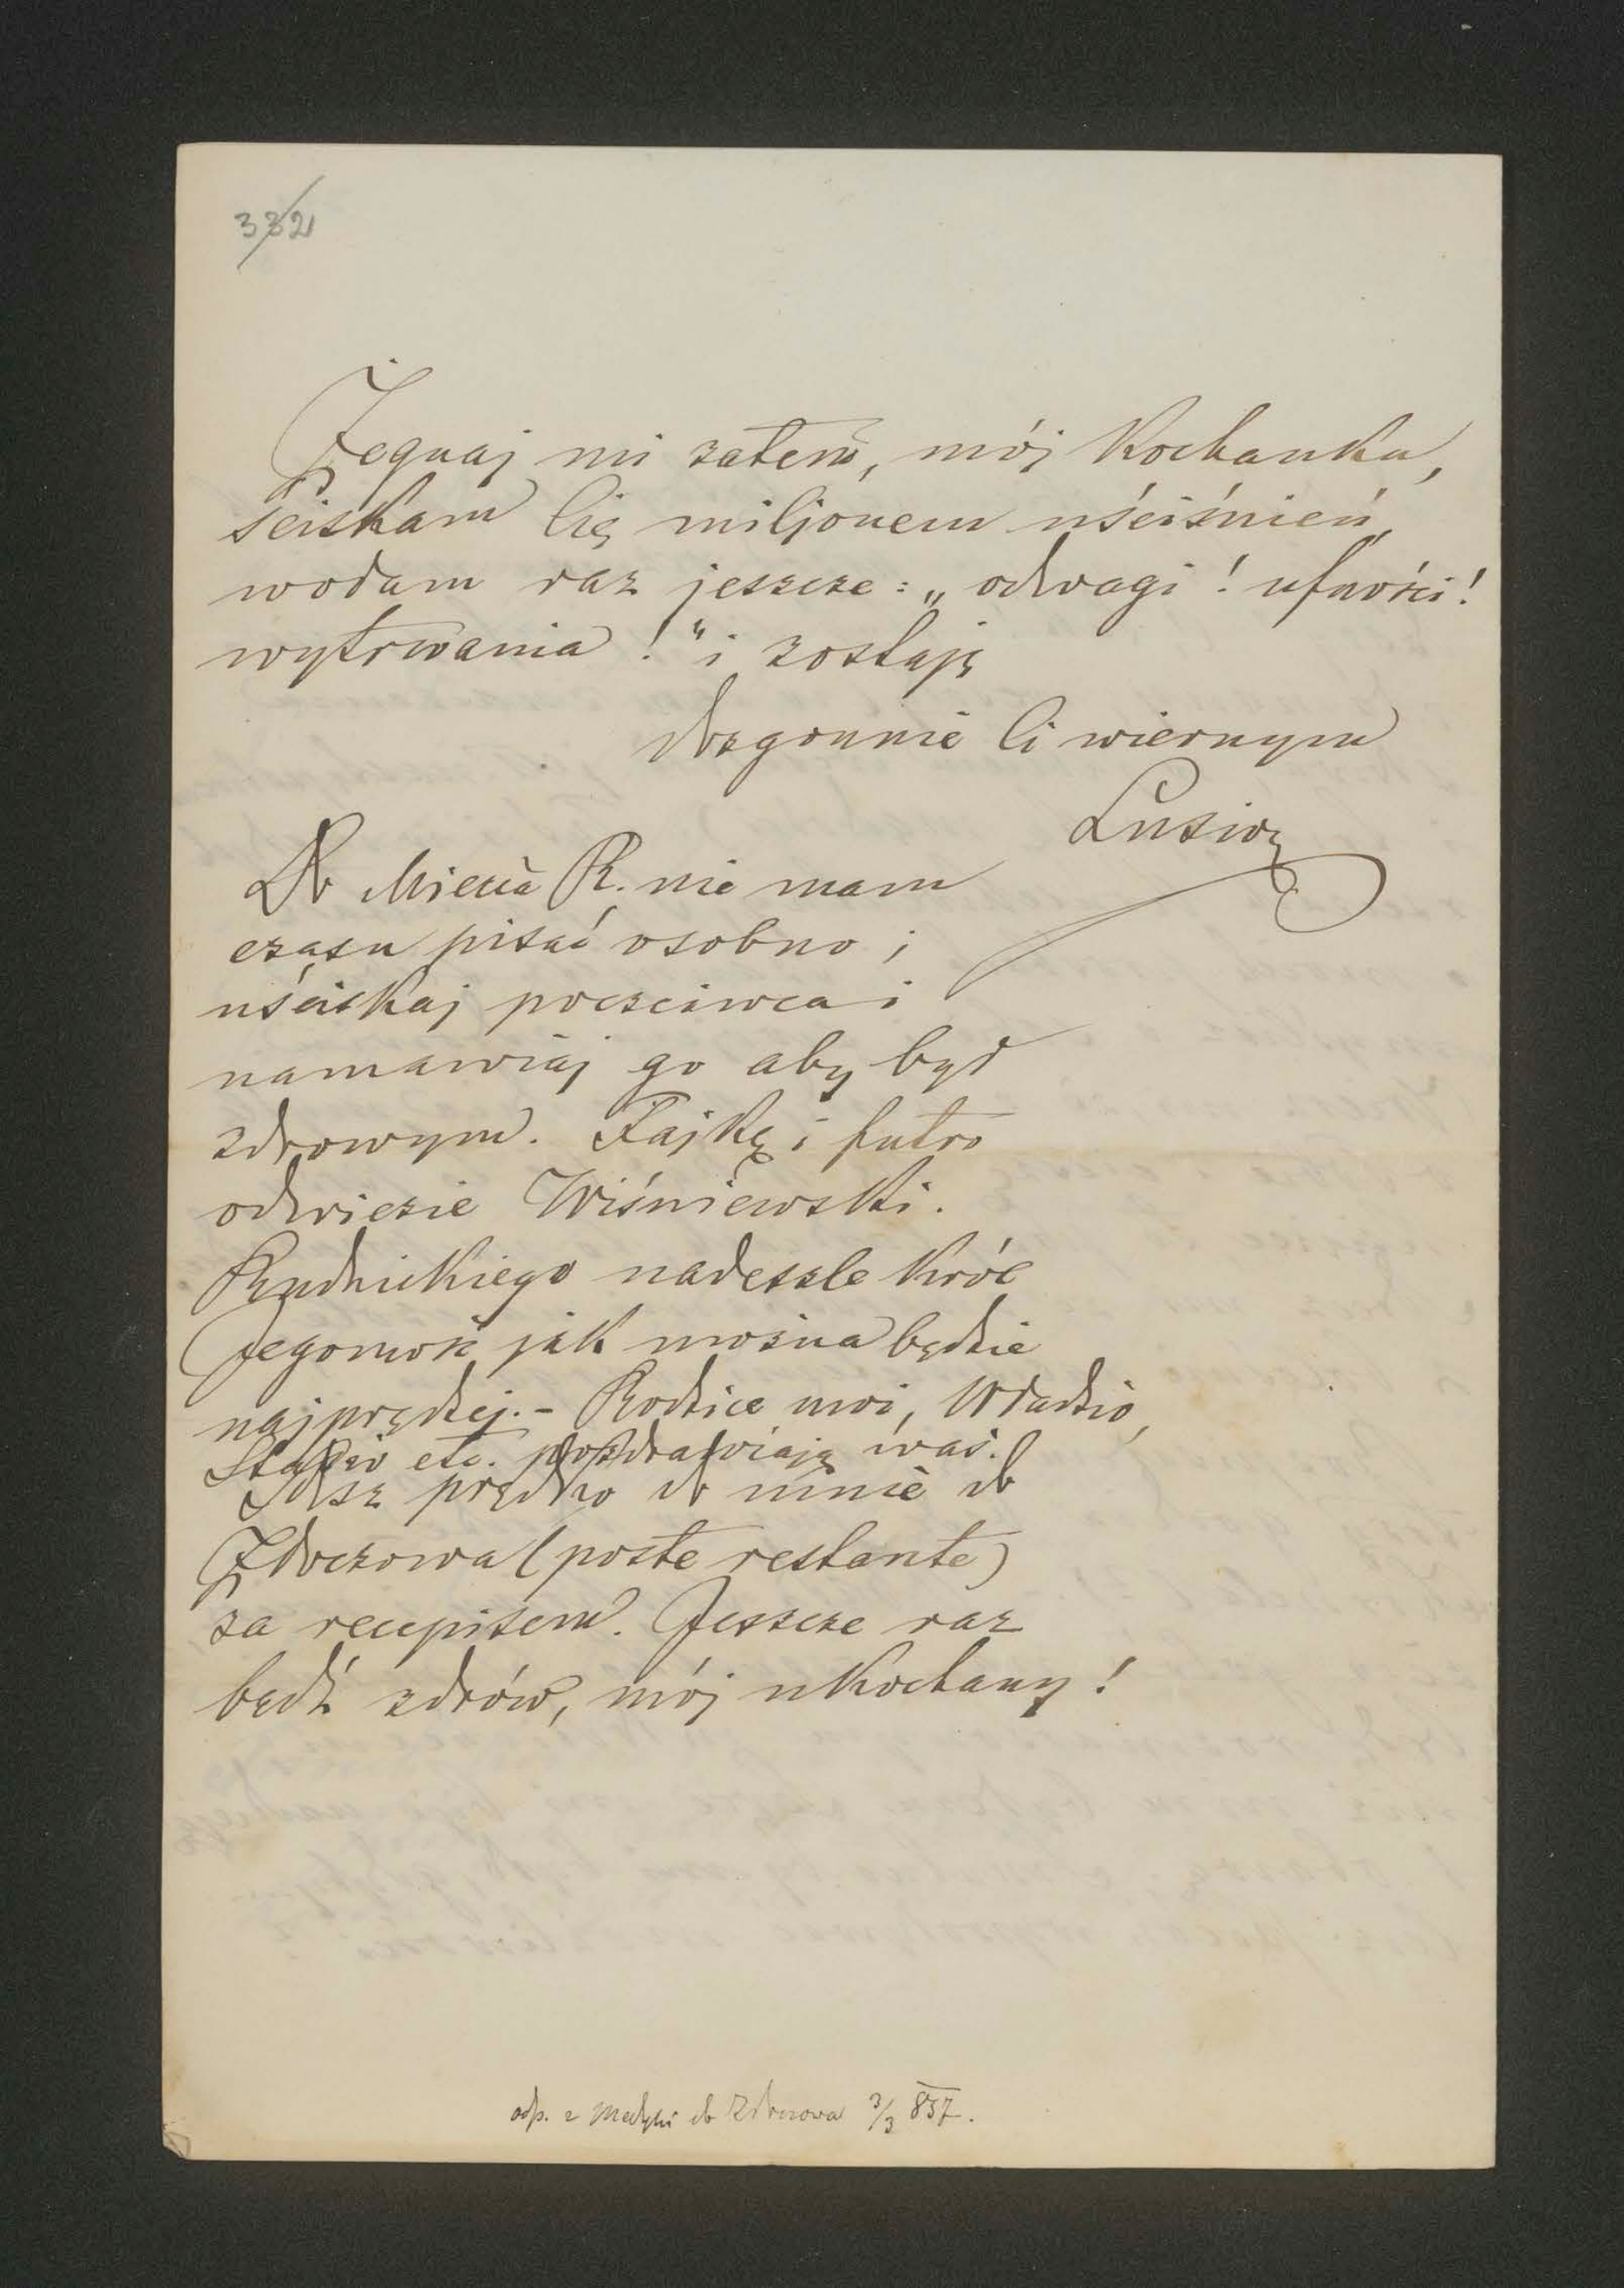 332
Żegnaj mi zatem, mój Kochanku,
ściskam Cię miljonem uściśnień,
wołam raz jeszcze: „odwagi! ufności!
wytrwania!" i zostaję
dozgonnie Ci wiernym
Lusio
Do Miecia R. nie mam
czasu pisać osobno;
uściskaj poczciwca i
namawiaj go aby był
zdrowym. Fajkę i futro
odwiezie Wiśniewski.
Rudnickiego nadeszle Król
Jegomość jak można będzie
najprędzej. - Rodzice moi, Władzio,
Stasio etc. pozdrawiają was.
Pisz prędko do mnie do
Złoczowa (poste restante)
za recepisem. Jeszcze raz
bądź zdrów, mój ukochany!
odp. z Medyki do Złoczowa 3/3 857.